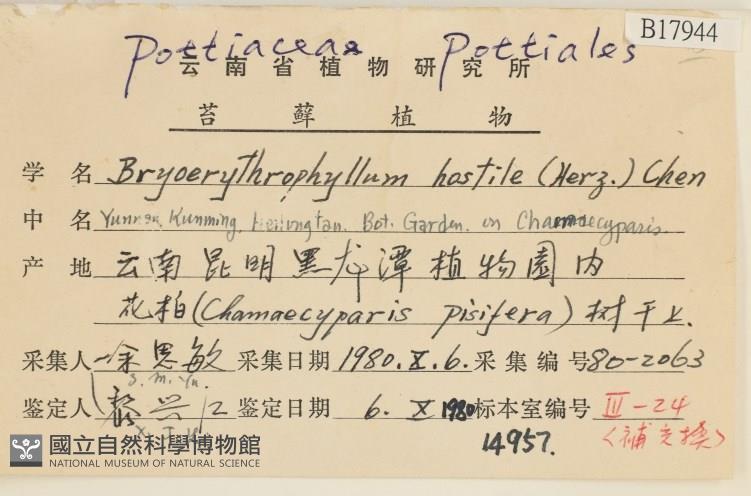 B17944
Pottiaceae Pottiales
云南省植物研究所
苔藓植物
学名 Bryoerythrophyllum hostile (Herz.) Chen
中名 Yunnan, Kunming, Heilungtan. Bot. Garden. on Chamaecyparis.
产地 云南昆明黑龙潭植物園内
花柏(Chamaecyparis pisifera)树干上.
采集人 余恩敏 采集日期 1980.X.6. 采集编号 80-2063
S. M. Yu.
鉴定人 黎兴江 鉴定日期 6. X 1980 标本室编号 III-24
14957.
國立自然科學博物館
NATIONAL MUSEUM OF NATURAL SCIENCE